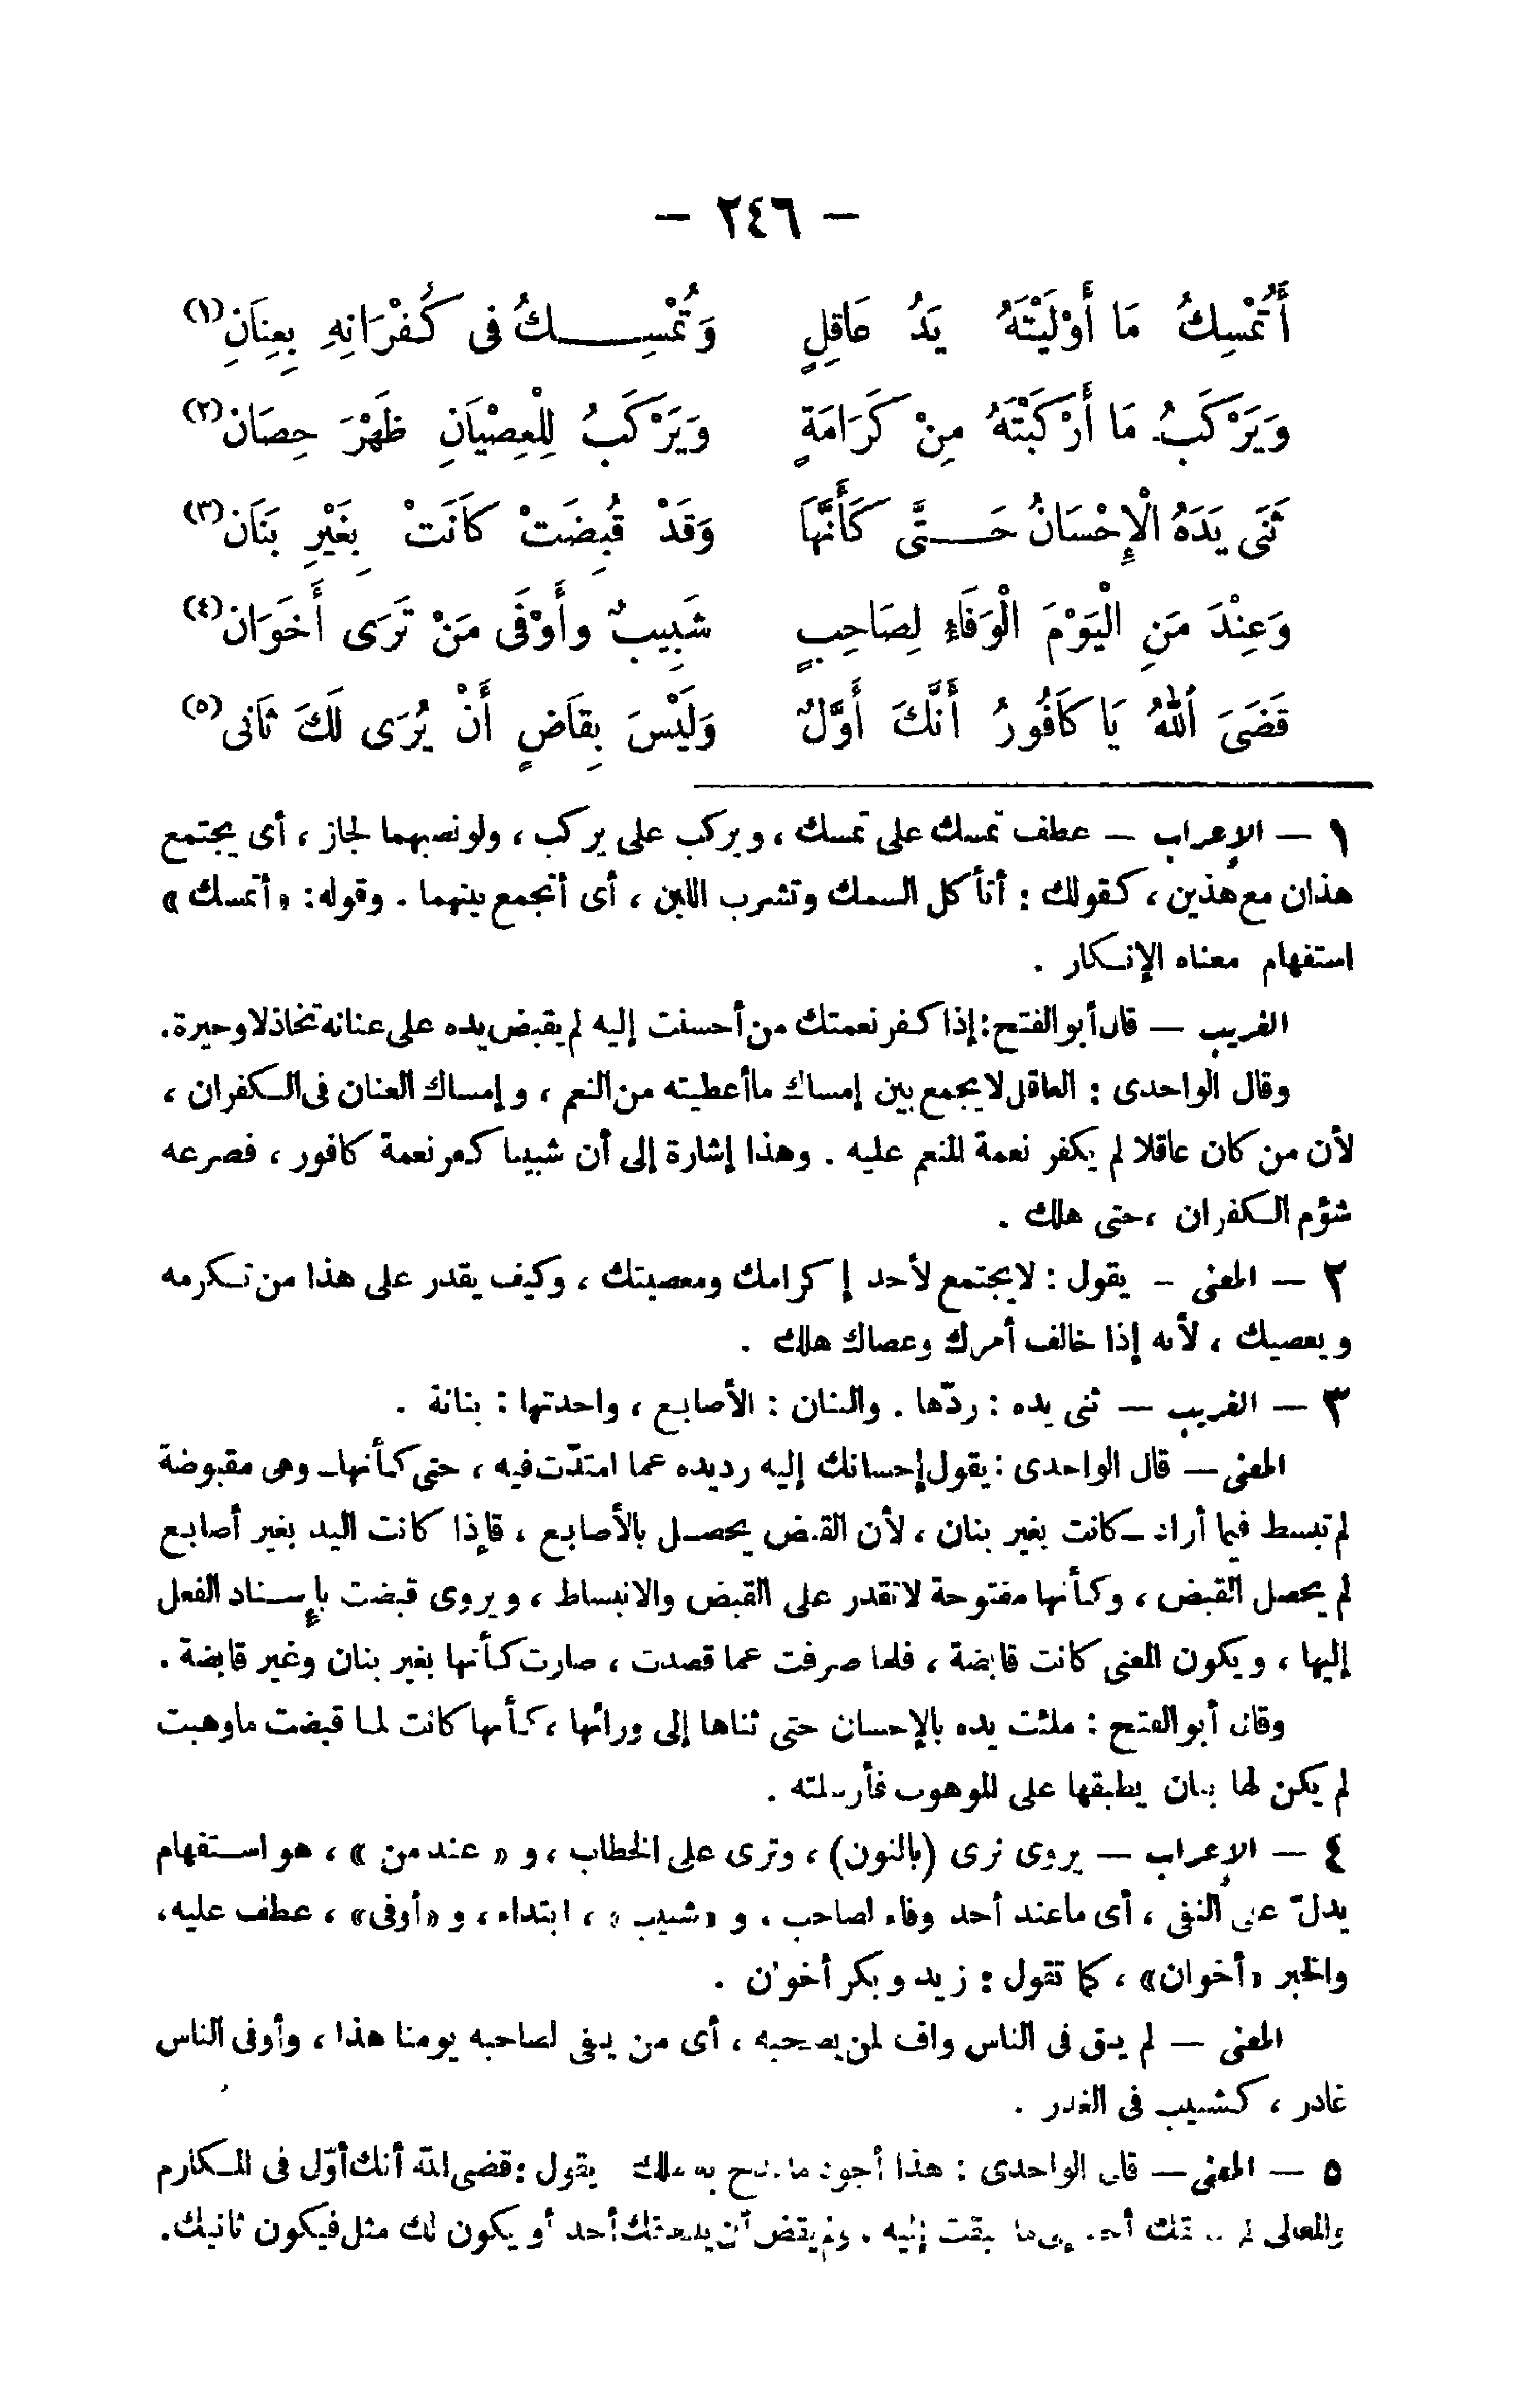 — ٢٤٦ —
أَتُمْسِكُ مَا أَوْلَيْتَهُ يَدُ عَاقِلٍ وَتُمْسِكُ فى كُفْرَانِهِ بِعِنَانِ (١)
وَيَرْكَبُ مَا أَرْكَبْتَهُ مِنْ كَرَامَةٍ وَيَرْكَبُ لِلْعِصْيَانِ ظَهْرَ حِصَانِ (٢)
ثَنَى يَدَهُ الْإِحْسَانُ حَتَّى كَأَنَّهَا وَقَدْ قُبِضَتْ كَانَتْ بِغَيْرِ بَنَانِ (٣)
وَعِنْدَ مَنِ الْيَوْمَ الْوَفَاءُ لِصَاحِبٍ شَبِيبٌ وأَوْفَى مَنْ تَرَى أَخَوَانِ (٤)
قَضَى اللهُ يَا كَافُورُ أَنَّكَ أَوَّلٌ وَلَيْسَ بِقَاضٍ أَنْ يُرَى لَكَ ثَانى (٥)
١ — الإعراب — عطف تمسك على تمسك ، ويركب على يركب ، ولو نصبهما لجاز ، أى يجتمع
هذان مع هذين ، كقولك : أتأكل السمك وتشرب اللبن ، أى أتجمع بينهما . وقوله : «أتمسك»
استفهام معناه الإنكار .
الغريب — قال أبو الفتح : إذا كفر نعمتك من أحسنت إليه لم يقبض يده على عنانه تخاذلا وحيرة .
وقال الواحدى : العاقل لا يجمع بين إمساك ما أعطيته من النعم ، وإمساك العنان فى الكفران ،
لأن من كان عاقلا لم يكفر نعمة المنعم عليه . وهذا إشارة إلى أن شبيبا كفر نعمة كافور ، فصرعه
شؤم الكفران ، حتى هلك .
٢ — المعنى — يقول : لا يجتمع لأحد إكرامك ومعصيتك ، وكيف يقدر على هذا من تكرمه
ويعصيك ، لأنه إذا خالف أمرك وعصاك هلك .
٣ — الغريب — ثنى يده : ردّها . والبنان : الأصابع ، واحدتها : بنانة .
المعنى — قال الواحدى : يقول إحسانك إليه رد يده عما امتدّت فيه ، حتى كأنها ـ وهى مقبوضة
لم تبسط فيما أراد ـ كانت بغير بنان ، لأن القبض يحصل بالأصابع ، فإذا كانت اليد بغير أصابع
لم يحصل القبض ، وكأنها مفتوحة لا تقدر على القبض والانبساط ، ويروى قبضت بإسناد الفعل
إليها ، ويكون المعنى كانت قابضة ، فلما صرفت عما قصدت ، صارت كأنها بغير بنان وغير قابضة .
وقال أبو الفتح : ملئت يده بالإحسان حتى ثناها إلى ورائها ، كأنها كانت لما قبضت ما وهبت
لم يكن لها بنان يطبقها على الموهوب فأرسلته .
٤ — الإعراب — يروى نرى (بالنون) ، وترى على الخطاب ، و « عند من » ، هو استفهام
يدلّ على النفى ، أى ما عند أحد وفاء لصاحب . و «شبيب» ، ابتداء ، و «أوفى» ، عطف عليه ،
والخبر «أخوان» ، كما تقول : زيد وبكر أخوان .
المعنى — لم يبق فى الناس واف لمن يصحبه ، أى من يفى لصاحبه يومنا هذا ، وأوفى الناس
غادر ، كشبيب فى الغدر .
٥ — المعنى — قال الواحدى : هذا أجود ما مدح به ملك يقول : قضى الله أنك أوّل فى المكارم
والمعالى لم يسبقك أحد إلى ما سبقت إليه . ولم يقض أن يلحقك أحد أو يكون لك مثل فيكون ثانيك .